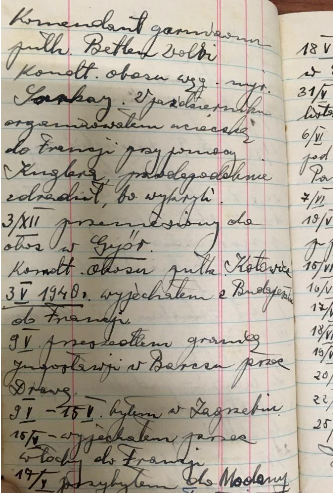 Komendant garnizonu
pułk. Betlen Volbi
Komdt. obozu węg. mjr.
Sarkay. W październiku
organizowałem ucieczkę
do Francji przy pomocy
Knglera, prawdopodobnie
zdradził, bo wykryli.
3/XII przeniesiony do
oboz w Győr
Komdt. obozu pułk Kotowicz
3 V 1940 r. wyjechałem z Budapesztu
do Francji.
9 V przeszedłem granicę
jugosławji w Barcsu przez
Drawę
9 V - 15 V. byłem w Zagrzebiu
15/V - wyjechałem przez
włochy do Francji
17/V przybyłem do Modany
18 V
w
31/V
6/VI
pod
7/VI
15/VII
16/V
17/
18/
19/V
20/
22/
25/